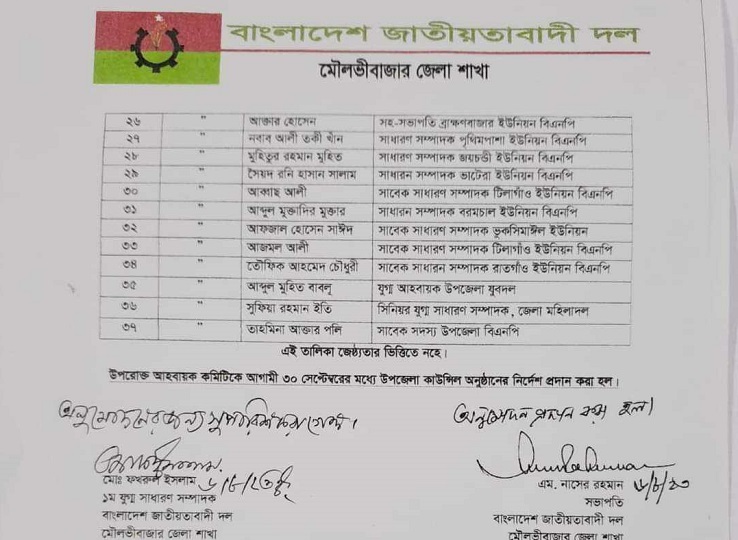 বাংলাদেশ জাতীয়তাবাদী দল
মৌলভীবাজার জেলা শাখা
২৬ " আক্তার হোসেন সহ-সভাপতি ব্রাহ্মণবাজার ইউনিয়ন বিএনপি
২৭ " নবাব আলী তকী খাঁন সাধারণ সম্পাদক পৃথিমপাশা ইউনিয়ন বিএনপি
২৮ " মুহিতুর রহমান মুহিত সাধারণ সম্পাদক জয়চন্ডী ইউনিয়ন বিএনপি
২৯ " সৈয়দ রনি হাসান সালাম সাধারণ সম্পাদক ভাটেরা ইউনিয়ন বিএনপি
৩০ " আক্কাছ আলী সাবেক সাধারণ সম্পাদক টিলাগাঁও ইউনিয়ন বিএনপি
৩১ " আব্দুল মুক্তাদির মুক্তার সাধারন সম্পাদক বরমচাল ইউনিয়ন বিএনপি
৩২ " আফজাল হোসেন সাঈদ সাবেক সাধারণ সম্পাদক ভুকসিমাইল ইউনিয়ন
৩৩ " আজমল আলী সাবেক সাধারণ সম্পাদক টিলাগাঁও ইউনিয়ন বিএনপি
৩৪ " তৌফিক আহমেদ চৌধুরী সাবেক সাধারন সম্পাদক রাউৎগাঁও ইউনিয়ন বিএনপি
৩৫ " আব্দুল মুহিত বাবলু যুগ্ম আহবায়ক উপজেলা যুবদল
৩৬ " সুফিয়া রহমান ইতি সিনিয়র যুগ্ম সাধারণ সম্পাদক, জেলা মহিলাদল
৩৭ " তাহমিনা আক্তার পলি সাবেক সদস্য উপজেলা বিএনপি
এই তালিকা জেষ্ঠ্যতার ভিত্তিতে নহে।
উপরোক্ত আহবায়ক কমিটিকে আগামী ৩০ সেপ্টেম্বরের মধ্যে উপজেলা কাউন্সিল অনুষ্ঠানের নির্দেশ প্রদান করা হল।
অনুমোদনের জন্য সুপারিশ করা গেল।
অনুমোদন প্রদান করা হল।
মোঃ ফখরুল ইসলাম
১ম যুগ্ম সাধারণ সম্পাদক
বাংলাদেশ জাতীয়তাবাদী দল
মৌলভীবাজার জেলা শাখা
এম. নাসের রহমান
সভাপতি
বাংলাদেশ জাতীয়তাবাদী দল
মৌলভীবাজার জেলা শাখা